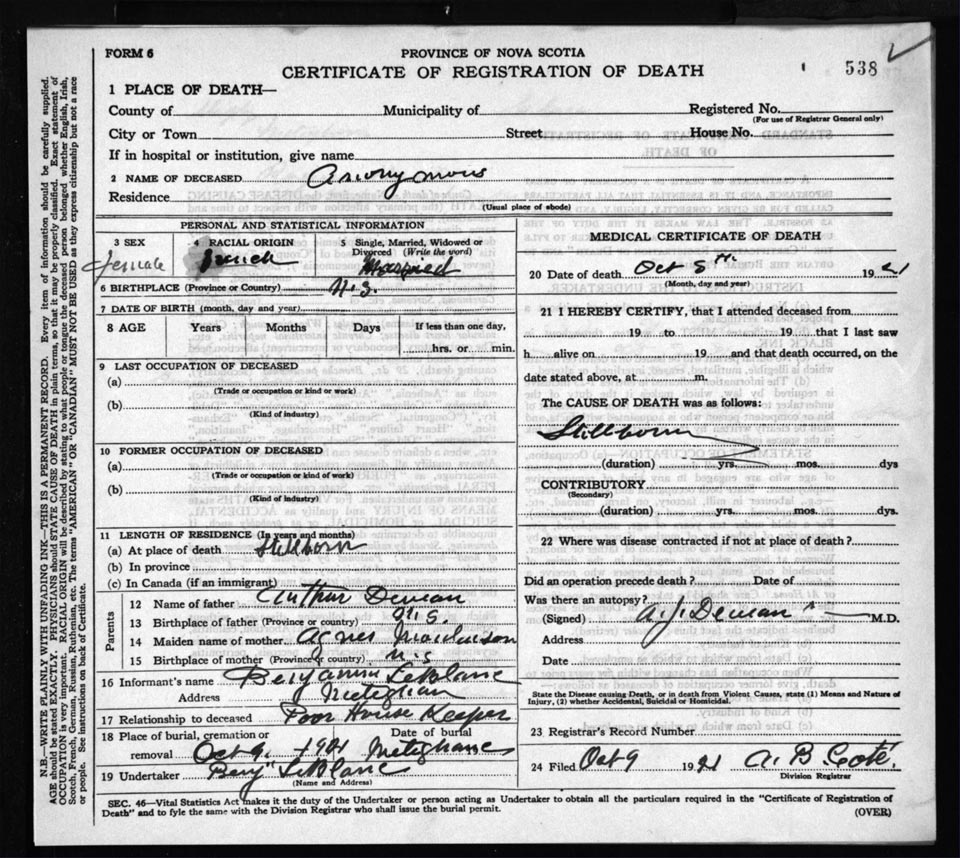 FORM 6
PROVINCE OF NOVA SCOTIA
CERTIFICATE OF REGISTRATION OF DEATH
538
1 PLACE OF DEATH—
County of Municipality of Registered No.
(For use of Registrar General only)
City or Town Street House No.
If in hospital or institution, give name
2 NAME OF DECEASED Anonymous
Residence
(Usual place of abode)
PERSONAL AND STATISTICAL INFORMATION
3 SEX 4 RACIAL ORIGIN 5 Single, Married, Widowed or
Divorced (Write the word)
female French
6 BIRTHPLACE (Province or Country) N.S.
7 DATE OF BIRTH (month, day and year)
8 AGE Years Months Days If less than one day,
hrs. or min.
9 LAST OCCUPATION OF DECEASED
(a)
(Trade or occupation or kind or work)
(b)
(Kind of industry)
10 FORMER OCCUPATION OF DECEASED
(a)
(Trade or occupation or kind of work)
(b)
(Kind of industry)
11 LENGTH OF RESIDENCE (In years and months)
(a) At place of death Stillborn
(b) In province
(c) In Canada (if an immigrant)
Parents
12 Name of father Arthur Deveau
13 Birthplace of father (Province or country) N.S.
14 Maiden name of mother Agnes
15 Birthplace of mother (Province or country) N.S
16 Informant's name Benjamin LeBlanc
Address Meteghan
17 Relationship to deceased Poor House Keeper
18 Place of burial, cremation or Date of burial
removal Oct 9. 1921 Meteghan
19 Undertaker Benj LeBlanc
(Name and Address)
MEDICAL CERTIFICATE OF DEATH
20 Date of death Oct 5th 1921
(Month, day and year)
21 I HEREBY CERTIFY, that I attended deceased from
19 to 19 that I last saw
h alive on 19 and that death occurred, on the
date stated above, at m.
The CAUSE OF DEATH was as follows:
Stillborn
(duration) yrs. mos. dys
CONTRIBUTORY
(Secondary)
(duration) yrs. mos. dys.
22 Where was disease contracted if not at place of death?
Did an operation precede death? Date of
Was there an autopsy?
(Signed) A. J. Deveau M.D.
Address
Date
State the Disease causing Death, or in death from Violent Causes, state (1) Means and Nature of
Injury, (2) whether Accidental, Suicidal or Homicidal.
23 Registrar's Record Number
24 Filed Oct 9 1921 A. B Coté.
Division Registrar
SEC. 46—Vital Statistics Act makes it the duty of the Undertaker or person acting as Undertaker to obtain all the particulars required in the "Certificate of Registration of
Death" and to fyle the same with the Division Registrar who shall issue the burial permit. (OVER)
N.B.—WRITE PLAINLY WITH UNFADING INK—THIS IS A PERMANENT RECORD. Every item of information should be carefully supplied.
AGE should be stated EXACTLY. PHYSICIANS should STATE CAUSE OF DEATH in plain terms, so that it may be properly classified. Exact statement of
OCCUPATION is very important. RACIAL ORIGIN will be described by stating to what people or tongue the deceased person belonged whether English, Irish,
Scotch, French, German, Russian, Ruthenian, etc. The terms "AMERICAN" OR "CANADIAN" MUST NOT BE USED as they express citizenship but not a race
or people. See instructions on back of Certificate.